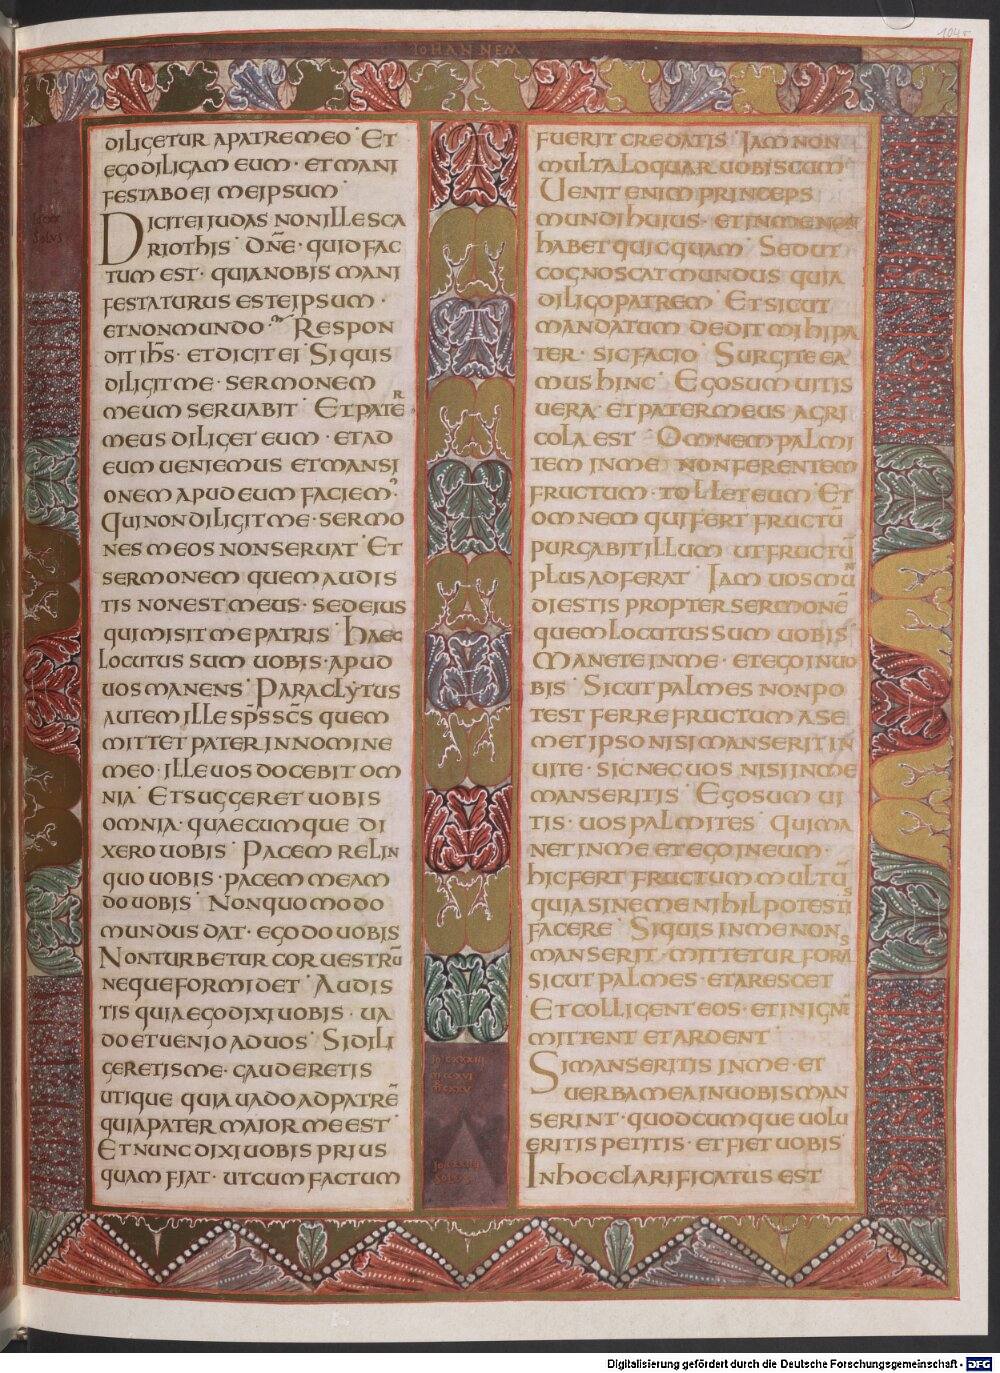 IOHANNEM
104r
DILIGETUR A PATRE MEO · ET
EGO DILIGAM EUM · ET MANI
FESTABO EI MEIPSUM ·
DICIT EI IUDAS NON ILLE SCA
RIOTHIS · DN̄E · QUID FAC
TUM EST · QUIA NOBIS MANI
FESTATURUS ES TEIPSUM ·
ET NON MUNDO · RESPON
DIT IHS̄ · ET DICIT EI · SI QUIS
DILIGIT ME · SERMONEM
MEUM SERUABIT · ET PATER
MEUS DILIGET EUM · ET AD
EUM UENIEMUS ET MANSI
ONEM APUD EUM FACIEM'
QUI NON DILIGIT ME · SERMO
NES MEOS NON SERUAT · ET
SERMONEM QUEM AUDIS
TIS NON EST MEUS · SED EIUS
QUI MISIT ME PATRIS · HAEC
LOCUTUS SUM UOBIS · APUD
UOS MANENS · PARACLYTUS
AUTEM ILLE SP̄S SC̄S QUEM
MITTET PATER IN NOMINE
MEO · ILLE UOS DOCEBIT OM
NIA · ET SUGGERET UOBIS
OMNIA · QUAECUMQUE DI
XERO UOBIS · PACEM RELIN
QUO UOBIS · PACEM MEAM
DO UOBIS · NON QUOMODO
MUNDUS DAT · EGO DO UOBIS
NON TURBETUR COR UESTRŪ
NEQUE FORMIDET · AUDIS
TIS QUIA EGO DIXI UOBIS · UA
DO ET UENIO AD UOS · SI DILI
GERETIS ME · GAUDERETIS
UTIQUE QUIA UADO AD PATRĒ
QUIA PATER MAIOR ME EST ·
ET NUNC DIXI UOBIS PRIUS
QUAM FIAT · UT CUM FACTUM
FUERIT CREDATIS · IAM NON
MULTA LOQUAR UOBISCUM ·
UENIT ENIM PRINCEPS
MUNDI HUIUS · ET IN ME NON
HABET QUICQUAM · SED UT
COGNOSCAT MUNDUS QUIA
DILIGO PATREM · ET SICUT
MANDATUM DEDIT MIHI PA
TER · SIC FACIO · SURGITE EA
MUS HINC · EGO SUM UITIS
UERA · ET PATER MEUS AGRI
COLA EST · OMNEM PALMI
TEM IN ME NON FERENTEM
FRUCTUM · TOLLET EUM · ET
OMNEM QUI FERT FRUCTŪ
PURGABIT ILLUM UT FRUCTŪ
PLUS ADFERAT · IAM UOS MUN
DI ESTIS PROPTER SERMONĒ
QUEM LOCUTUS SUM UOBIS ·
MANETE IN ME · ET EGO IN UO
BIS · SICUT PALMES NON PO
TEST FERRE FRUCTUM A SE
METIPSO NISI MANSERIT IN
UITE · SIC NEC UOS NISI IN ME
MANSERITIS · EGO SUM UI
TIS · UOS PALMITES · QUI MA
NET IN ME ET EGO IN EUM ·
HIC FERT FRUCTUM MULTŪ
QUIA SINE ME NIHIL POTESTIS
FACERE · SI QUIS IN ME NON
MANSERIT · MITTETUR FORAS
SICUT PALMES · ET ARESCET
ET COLLIGENT EOS · ET IN IGNĒ
MITTENT ET ARDENT ·
SI MANSERITIS IN ME · ET
UERBA MEA IN UOBIS MAN
SERINT · QUODCUMQUE UOLU
ERITIS PETITIS · ET FIET UOBIS ·
IN HOC CLARIFICATUS EST
SOLUS
IO CXXXIII
Digitalisierung gefördert durch die Deutsche Forschungsgemeinschaft - DFG